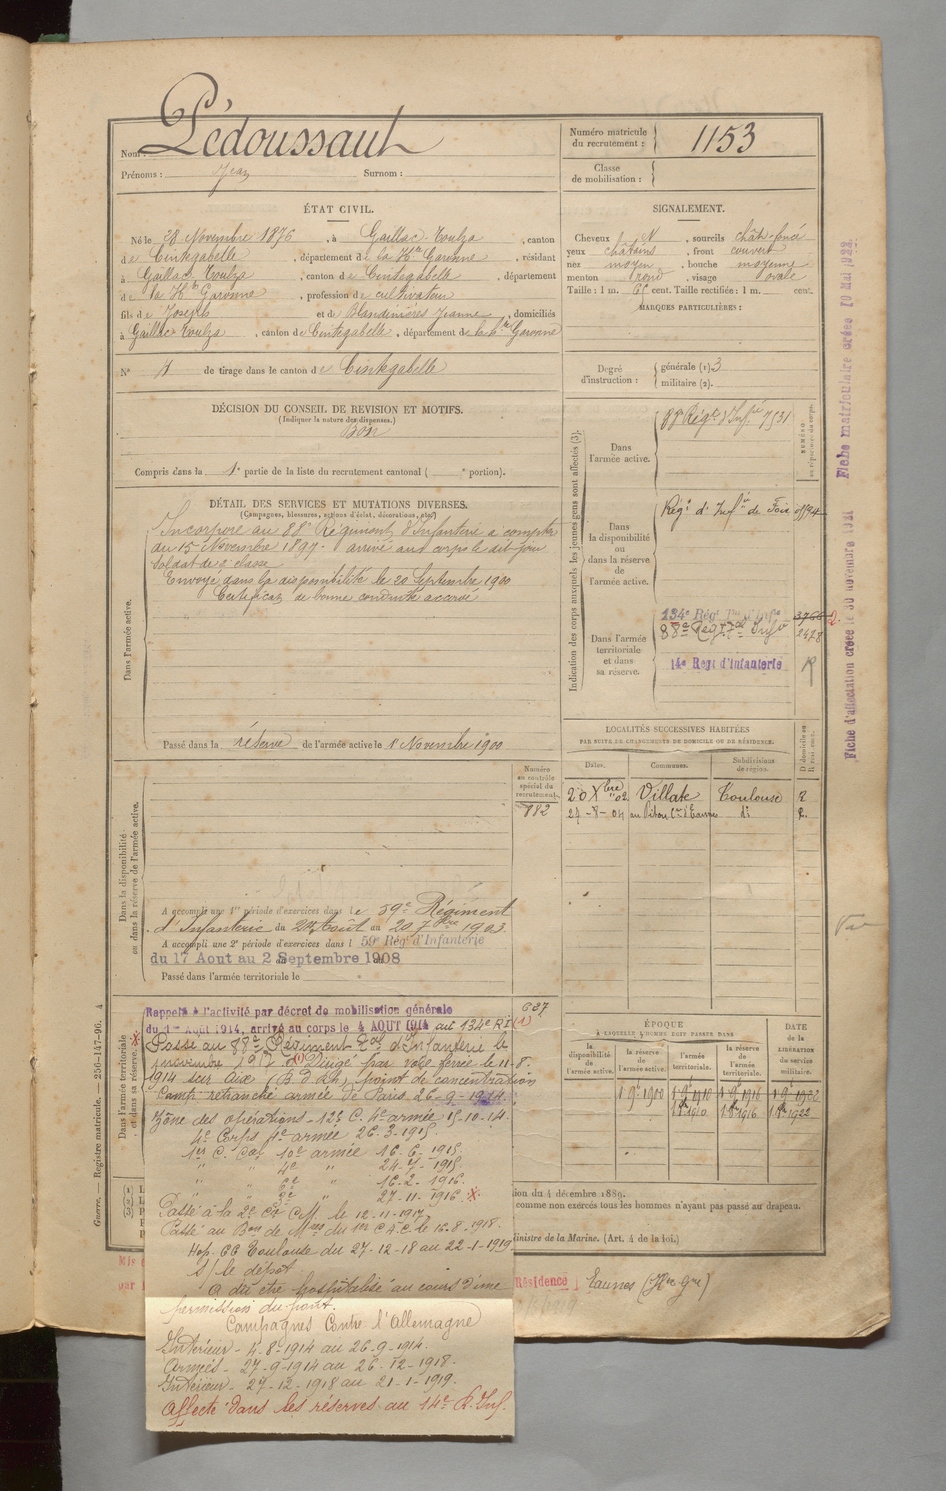 Nom : Pédoussaut
Prénoms : Jean Surnom :
Numéro matricule du recrutement : 1153
Classe de mobilisation :
ÉTAT CIVIL.
Né le 28 Novembre 1876, à Gaillac-Toulza, canton
de Cintegabelle, département de la Hte Garonne, résidant
à Gaillac-Toulza, canton de Cintegabelle, département
de la Hte Garonne, profession de cultivateur
fils de Joseph et de Blandinières Jeanne, domiciliés
à Gaillac-Toulza, canton de Cintegabelle, département de la Hte Garonne
N° 1 de tirage dans le canton de Cintegabelle
SIGNALEMENT.
Cheveux N, sourcils chât-foncé
yeux châtains, front couvert
nez moyen, bouche moyenne
menton rond, visage ovale
Taille : 1 m. 65 cent. Taille rectifiée : 1 m. cent.
MARQUES PARTICULIÈRES :
Degré d'instruction : générale (1) 3
militaire (2).
DÉCISION DU CONSEIL DE REVISION ET MOTIFS.
(Indiquer la nature des dispenses.)
Bon
Compris dans la 1e partie de la liste du recrutement cantonal ( e portion).
DÉTAIL DES SERVICES ET MUTATIONS DIVERSES.
(Campagnes, blessures, actions d'éclat, décorations, etc.)
Dans l'armée active.
Incorporé au 88e Régiment d'Infanterie à compter
du 15 Novembre 1897. arrivé au corps le dit jour
soldat de 2e classe
Envoyé dans la disponibilité le 20 Septembre 1900
Certificat de bonne conduite accordé
Passé dans la réserve de l'armée active le 1er Novembre 1900
Indication des corps auxquels les jeunes gens sont affectés (3).
Dans l'armée active.
88e Régt d'Inf. 7531
NUMÉRO
Dans la disponibilité ou dans la réserve de l'armée active.
Régt d'Infie de Foix
Dans l'armée territoriale et dans sa réserve.
134e Régt
88e Regt Tal Infie 2478
14e Regt d'Infanterie R
LOCALITÉS SUCCESSIVES HABITÉES
PAR SUITE DE CHANGEMENTS DE DOMICILE OU DE RÉSIDENCE.
Dates. Communes. Subdivisions de région. D domicile ou R résidence.
20 Xbre 02 Villate Toulouse R
27-8-04 au Pitou Cne d'Eaunes d° R.
Dans la disponibilité ou dans la réserve de l'armée active.
Numéro au contrôle spécial du recrutement
A accompli une 1re période d'exercices dans le 59e Régiment
d'Infanterie du 24 Août au 20 7bre 1903
A accompli une 2e période d'exercices dans l 59e Rég d'Infanterie
du 17 Aout au 2 Septembre 1908
Passé dans l'armée territoriale le
Dans l'armée territoriale et dans sa réserve.
637
Rappelé à l'activité par décret de mobilisation générale
du 1er Août 1914, arrivé au corps le 4 AOUT 1914 au 134e RI (1)
Passé au 88e Régiment Tal d'Infanterie le
novembre (1) Dirigé par voie ferrée le 11-8-
1914 sur Aix (B. d. Rh) point de concentration
Camp retranché armée de Paris 26-9-1914.
Zône des opérations - 12e C. 4e armée 15-10-14.
4e Corps 4e armée 26-3-1915.
1er C. Cal 10e armée 16-6-1915.
" 4e " 24-7-1915.
" 6e " 16-2-1916.
" " 27-11-1916.
Passé à la 2e Cie C.M. le 12-11-1917
Passé au Bon de Mces du 1er C.A.C. le 15-8-1918.
Hop. CC Toulouse du 27-12-18 au 22-1-1919
s/ le dépôt
a du être hospitalisé au cours d'une
permission du front.
Campagnes Contre l'Allemagne
Intérieur - 4-8-1914 au 26-9-1914.
Armées - 27-9-1914 au 26-12-1918.
Intérieur - 27-12-1918 au 21-1-1919.
Affecté dans les réserves au 14e R. Inf.
ÉPOQUE
À LAQUELLE L'HOMME DOIT PASSER DANS
DATE DE LA LIBÉRATION DU SERVICE militaire.
la disponibilité de l'armée active. la réserve de l'armée active. l'armée territoriale. la réserve de l'armée territoriale.
1 9bre 1900 1 9bre 1910 1 9bre 1916 1 9bre 1922
1 8bre 1910 1 8bre 1916 1 8bre 1922
ion du 4 décembre 1889.
comme non exercés tous les hommes n'ayant pas passé au drapeau.
inistre de la Marine. (Art. 4 de la loi.)
Résidence Eaunes (Hte Gne)
Guerre. — Registre matricule. — 256-147-96. 4
Fiche d'affectation créée le 30 novembre
Fiche matriculaire créée 10 Mai 1922